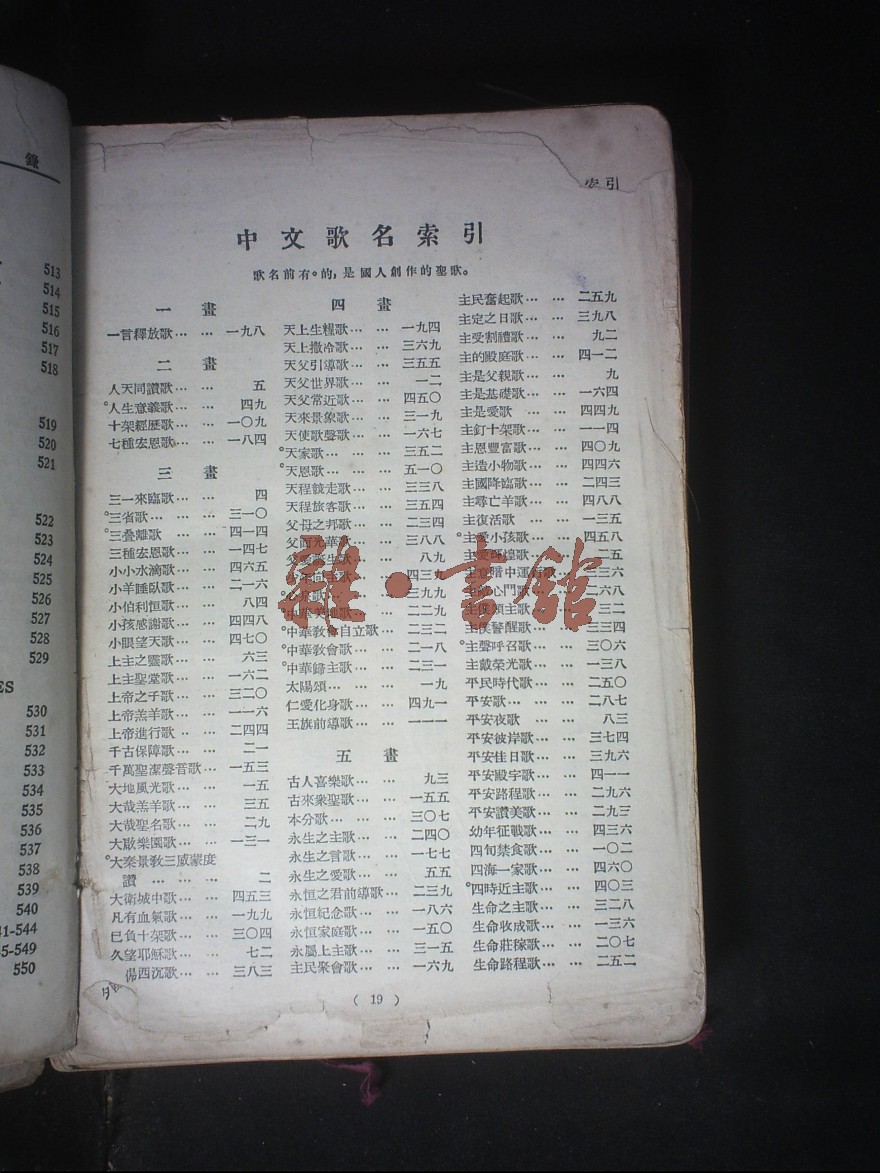 錄
513
514
515
516
517
518
519
520
521
522
523
524
525
526
527
528
529
ES
530
531
532
533
534
535
536
537
538
539
540
41-544
45-549
550
索引
中文歌名索引
歌名前有。的，是國人創作的聖歌。
一 畫
一言釋放歌… … 一九八
二 畫
人天同讚歌… … 五
。人生意義歌… … 四九
十架經歷歌… … 一〇九
七種宏恩歌… … 一八四
三 畫
三一來臨歌… … 四
。三省歌… … 三一〇
。三叠離歌… … 四一四
三種宏恩歌… … 一四七
小小水滴歌… … 四六五
小羊睡臥歌… … 二一六
小伯利恒歌… … 八四
小孩感謝歌… … 四四八
小眼望天歌… … 四七〇
上主之靈歌… … 六三
上主聖堂歌… … 一六二
上帝之子歌… … 三二〇
上帝羔羊歌… … 一一六
上帝進行歌… … 二四四
千古保障歌… … 二一
千萬聖潔聲音歌… 一五三
大地風光歌… … 一五
大哉羔羊歌… … 三五
大哉聖名歌… … 二九
大啟樂園歌… … 一三一
。大秦景敎三威蒙度
讚 … … … 二
大衛城中歌… … 四五三
凡有血氣歌… … 一九九
已負十架歌… … 三〇四
久望耶穌歌… … 七二
西沉歌… … 三八三
四 畫
天上生糧歌… … 一九四
天上撒冷歌… … 三六九
天父引導歌… … 三五五
天父世界歌… … 一二
天父常近歌… … 四五〇
天來景象歌… … 三一九
天使歌聲歌… … 一六七
。天家歌… … 三五二
。天恩歌… … 五一〇
天程競走歌… … 三三八
天程旅客歌… … 三五四
父母之邦歌… … 二三四
父面光華歌… … 三八八
八九
四三九
三九九
中華美地歌… … 二二九
。中華敎會自立歌… 二三二
。中華敎會歌… … 二一八
。中華歸主歌… … 二三一
太陽頌… … 一九
仁愛化身歌… … 四九一
王旗前導歌… … 一一一
五 畫
古人喜樂歌… … 九三
古來衆聖歌… … 一五五
本分歌… … 三〇七
永生之主歌… … 二四〇
永生之言歌… … 一七七
永生之愛歌… … 五五
永恒之君前導歌… 二三九
永恒紀念歌… … 一八六
永恒家庭歌… … 一五〇
永屬上主歌… … 三一五
主民聚會歌… … 一六九
主民奮起歌… … 二五九
主定之日歌… … 三九八
主受割禮歌… … 九二
主的殿庭歌… … 四一二
主是父親歌… … 九
主是基礎歌… … 一六四
主是愛歌 … … 四四九
主釘十架歌… … 一一四
主恩豐富歌… … 四〇九
主造小物歌… … 四四六
主國降臨歌… … 二四三
主尋亡羊歌… … 四八八
主復活歌 … … 一三五
。主愛小孩歌… … 四五八
主愛輝煌歌… … 二五
主意暗中運行歌… 三三六
心門歌… … 二六八
主僕頌主歌… … 三二
主僕警醒歌… … 三三四
。主聲呼召歌… … 三〇六
主戴榮光歌… … 一三八
平民時代歌… … 二五〇
平安歌… … 二八七
平安夜歌 … … 八三
平安彼岸歌… … 三七四
平安佳日歌… … 三九六
平安殿宇歌… … 四一一
平安路程歌… … 二九六
平安讚美歌… … 二九三
幼年征戰歌… … 四三六
四旬禁食歌… … 一〇二
四海一家歌… … 四六〇
。四時近主歌… … 四〇三
生命之主歌… … 三二八
生命收成歌… … 一三六
生命莊稼歌… … 二〇七
生命路程歌… … 二五二
( 19 )
雜·書館